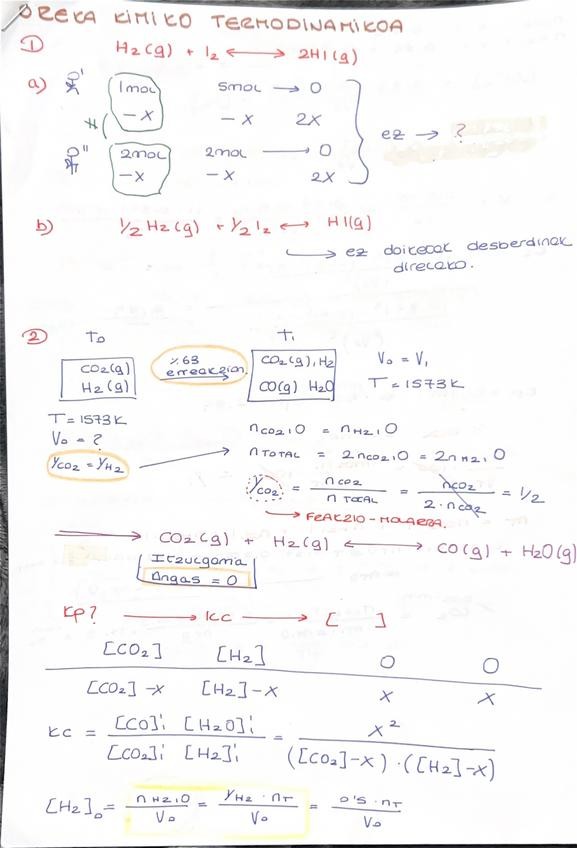 OREKA KIMIKO TERMODINAMIKOA
① H₂(g) + I₂ ⟷ 2HI(g)
a) ' 1mol 5mol → 0
-x -x 2x
'' 2mol 2mol → 0
-x -x 2x
ez → ?
b) ½ H₂(g) + ½ I₂ ⟷ HI(g)
↳ ez doiketak desberdinak
direlako.
② T₀ T₁
CO₂(g) H₂(g) %63 erreakzion. CO₂(g), H₂ CO(g) H₂O V₀ = V₁
T = 1573K
T = 1573K
V₀ = ? nCO₂,0 = nH₂,0
yCO₂ = yH₂ → nTOTAL = 2nCO₂,0 = 2nH₂,0
yCO₂ = nCO₂ / nTOTAL = nCO₂ / 2·nCO₂ = 1/2
→ FRAKZIO-MOLARRA.
⟹ CO₂(g) + H₂(g) ⟷ CO(g) + H₂O(g)
Itzulgarria
Δngas = 0
Kp? → Kc → [ ]
[CO₂] [H₂] 0 0
[CO₂]-x [H₂]-x x x
Kc = [CO]¡ [H₂O]¡ / [CO₂]¡ [H₂]¡ = x² / ([CO₂]-x)·([H₂]-x)
[H₂]₀ = nH₂,0 / V₀ = yH₂·nT / V₀ = 0'5·nT / V₀